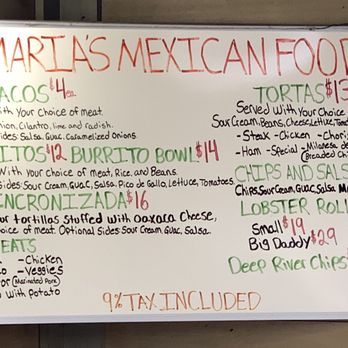 MARIA'S MEXICAN FOOD
TACOS $4 ea.
with your choice of meat.
onion, Cilantro, lime and radish.
Sides: Salsa, Guac, Caramelized Onions.
BURRITOS $12 BURRITO BOWL $14
With Your choice of meat, Rice, and Beans.
Sides: Sour Cream, Guac, Salsa, Pico de Gallo, Lettuce, Tomatoes.
SINCRONIZADA $16
Flour tortillas stuffed with Oaxaca Cheese,
choice of meat. Optional Sides: Sour Cream, Guac, Salsa.
MEATS
- Chicken
- Veggies
(Marinated Pork)
with Potato
TORTAS $13
Served With Your Choice
Sour Cream, Beans, Cheese, Lettuce,
- Steak - Chicken - Chori
- Ham - Special - Milanesa de
(Breaded Chi
CHIPS AND SALS
Chips, Sour Cream, Guac, Salsa
LOBSTER ROLL
Small $19
Big Daddy $29
Deep River Chips
9% TAX INCLUDED